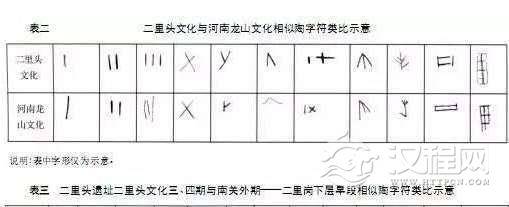 表二 二里头文化与河南龙山文化相似陶字符类比示意
二里头
文化
河南龙
山文化
说明：表中字形仅为示意。
汉程网
httpcn.com
表三 二里头遗址二里头文化三、四期与南关外期——二里岗下层早段相似陶字符类比示意